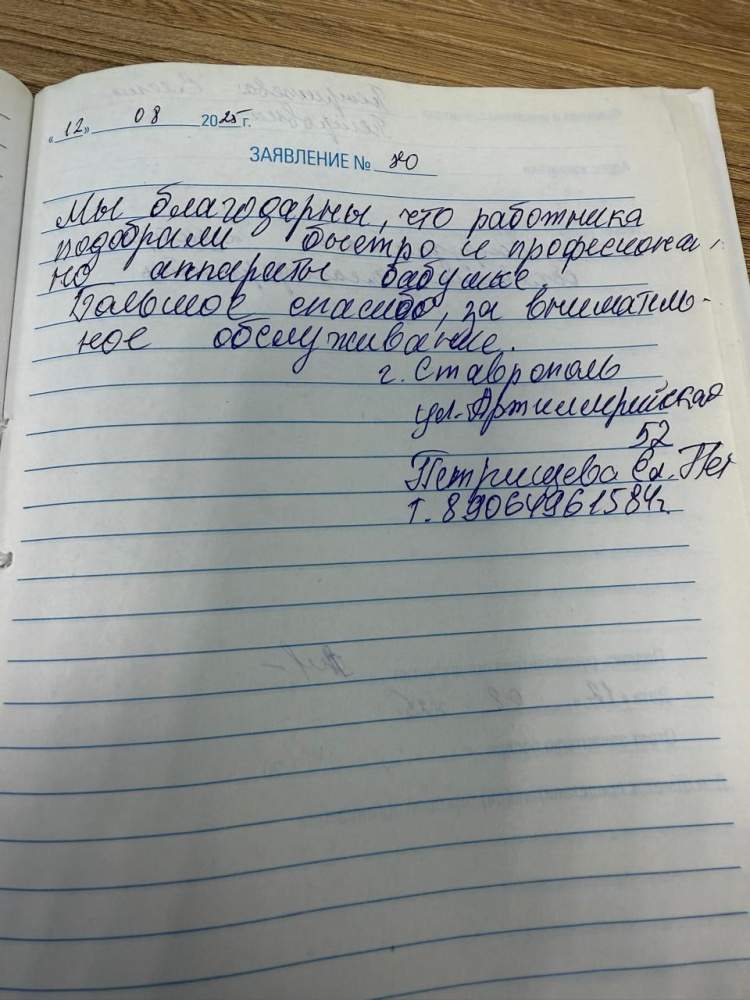 «12» 08 2025 г.
ЗАЯВЛЕНИЕ № 70
Мы благодарны, что работника
подобрали быстро и професиональ
но аппараты бабушке.
Большое спасибо, за вниматель-
ное обслуживание.
г. Ставрополь
ул. Артиллерийская
52
Петрищева Ел. Пет
т. 89064961584